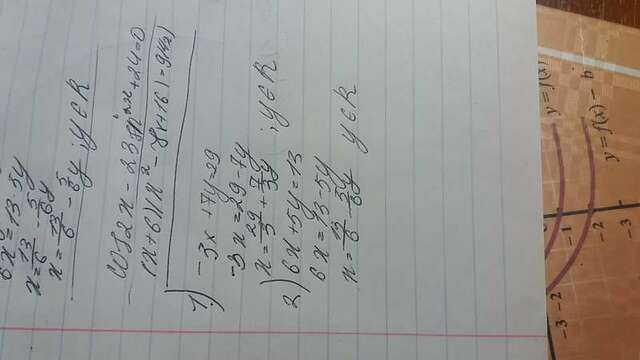 6x = 13 - 5y
x = 13/6 - 5/6y
x = 13/6 - 5/6y ; y∈R
(x+6)(x² - 
1) -3x + 7y = 29
-3x = 29 - 7y
x = 29/3 + 7/3y ; y∈R
2) 6x + 5y = 13
6x = 13 - 5y
x = 13/6 - 5/6y y∈R
y = f(x)
y = f(x) - b
-1
-2
-3
-3 -2